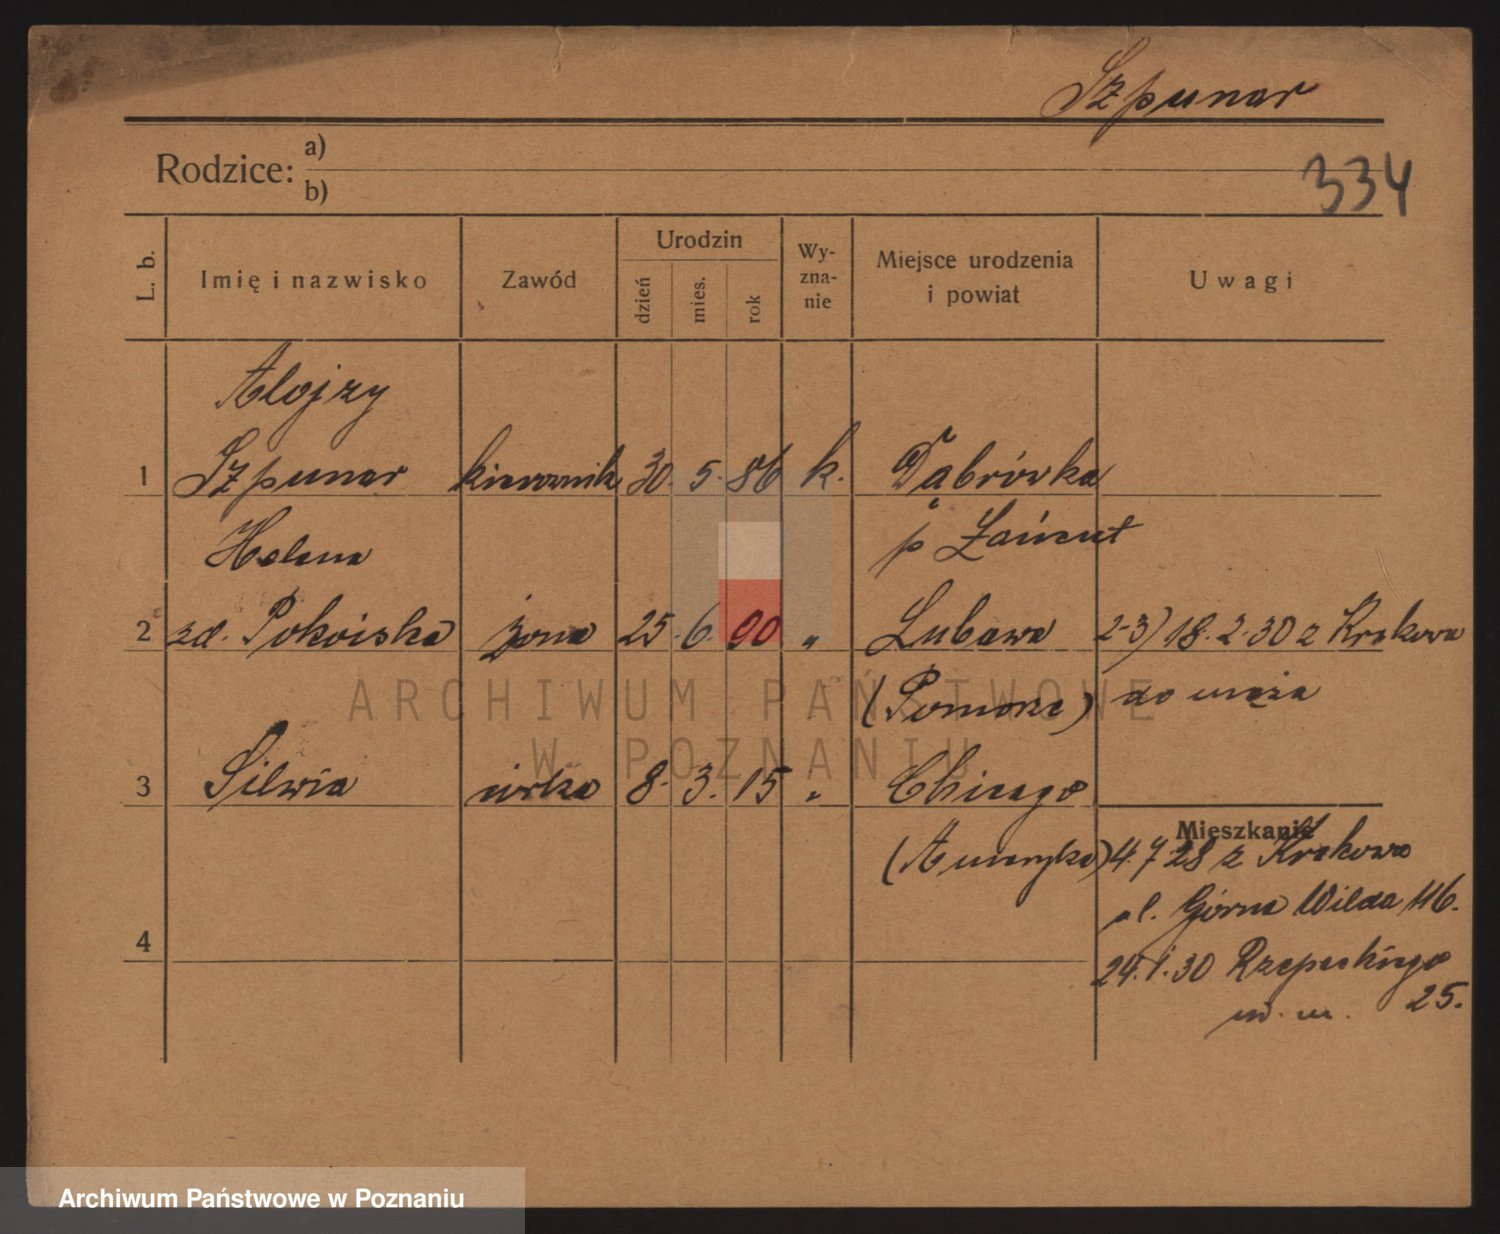 Szpunar
Rodzice: a)
b)
334
L. b.
Imię i nazwisko
Zawód
Urodzin
dzień
mies.
rok
Wy-
zna-
nie
Miejsce urodzenia
i powiat
Uwagi
Alojzy
1 Szpunar kierownik 30. 5. 86 k. Dąbrówka
Helena p Łańcut
2 zd. Pokoiska żona 25. 6. 90 " Lubawa 2-3) 18. 2. 30 z Krakowa
(Pomorze) do męża
3 Silwia córka 8. 3. 15 " Chicago
Mieszkanie
(Ameryka) 4. 7 28 z Krakowa
ul. Górna Wilda 116.
4
24. 1. 30 Rzepeckiego
25.
ARCHIWUM PAŃSTWOWE
W POZNANIU
Archiwum Państwowe w Poznaniu